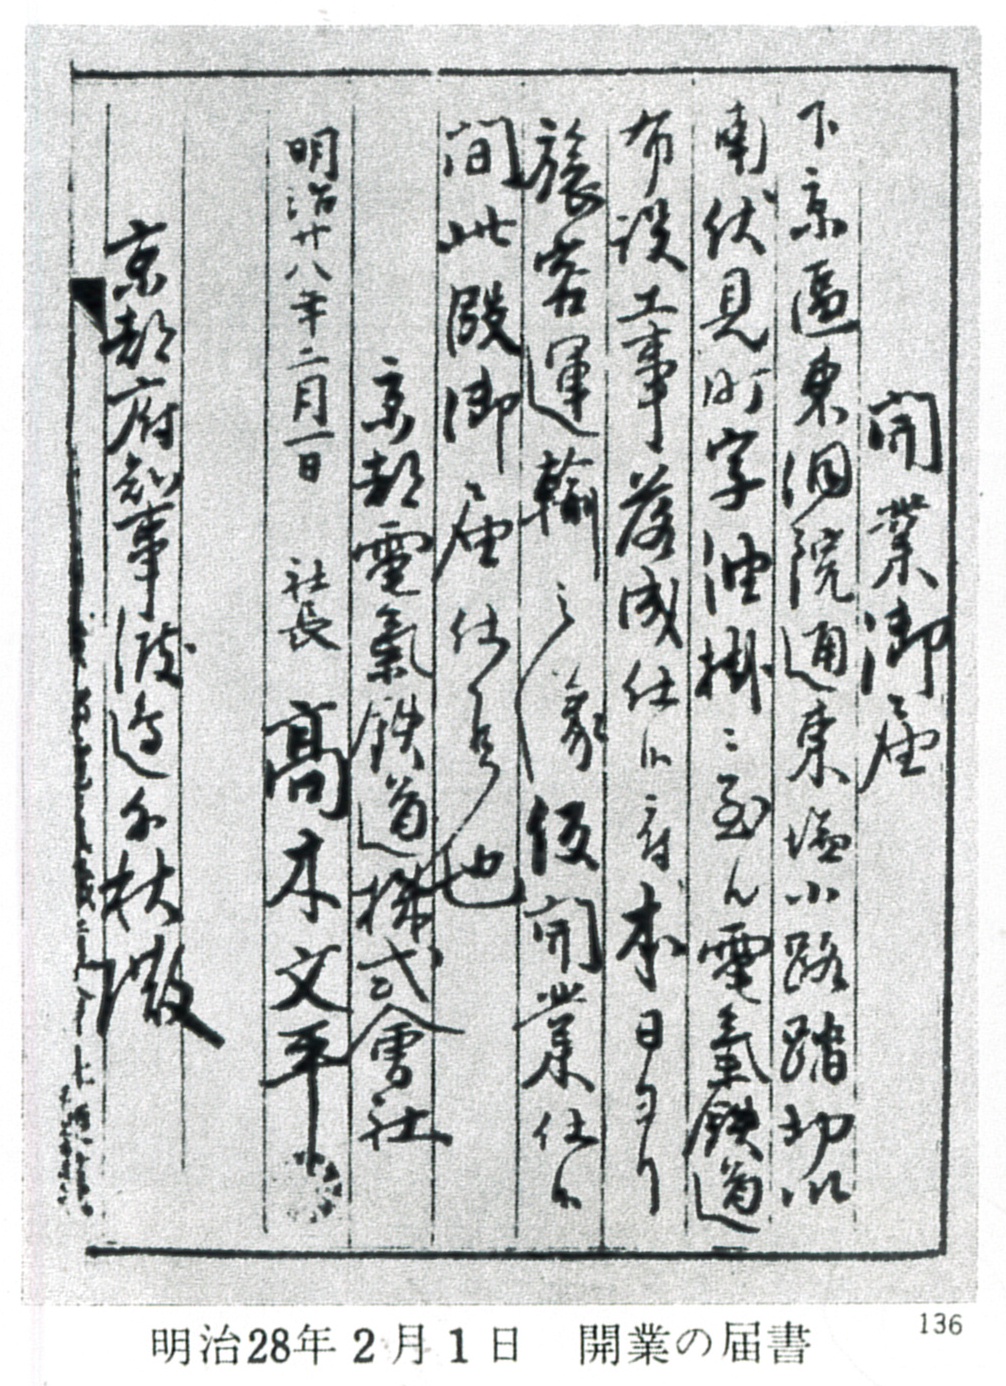 開業御届
下京區東洞院通東塩小路踏切以
南伏見町字油掛ニ至ル電氣鉄道
布設工事落成仕候ニ付本日ヨリ
旅客運輸之義仮開業仕候
間此段御届仕候也
京都電氣鉄道株式會社
明治廿八年二月一日 社長 髙木文平
京都府知事渡辺千秋殿
明治28年2月1日 開業の届書
136